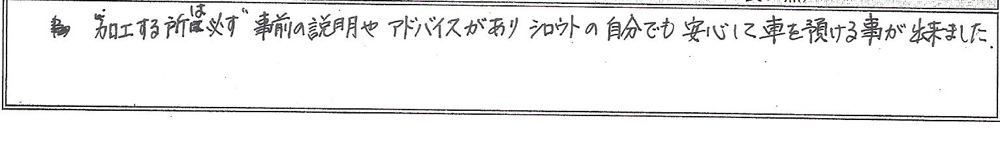 加工する所は必ず 事前の説明や アドバイスがあり シロウトの 自分でも 安心して 車を預ける事が 出来ました.